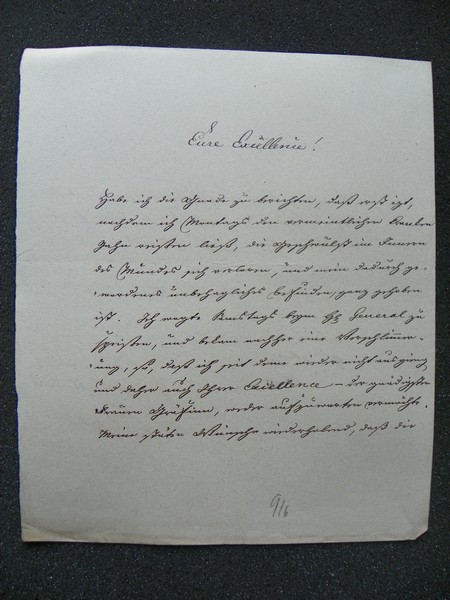 Eure Excellence!
Habe ich die Gnade zu berichten, daß erst izt,
nachdem ich Montags den vermeintlichen kranken
Zahn reißen ließ, die Geschwulst im Innern
des Mundes sich verloren, und mein dadurch ge-
wordenes unbehagliches befinden, ganz gehoben
ist. Ich wagte Samstags beym H General zu
speisen, und bekam nachher eine Verschlimmer-
ung, so, daß ich seit deme wieder nicht ausgieng
und daher auch Ihrer Excellence – der gnädigsten
Frauen Gräfinn, weder aufzuwarten vermochte.
Meine stäten Wünsche wiederholend, daß die
9/6